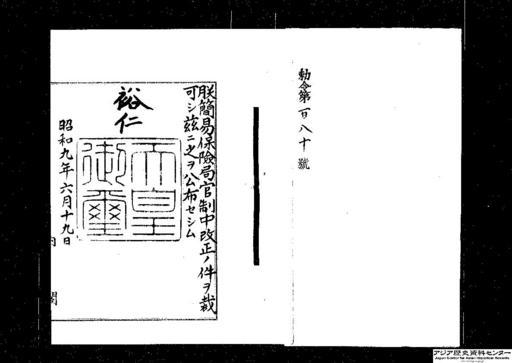 勅令第百八十號
朕簡易保險局官制中改正ノ件ヲ裁
可シ茲ニ之ヲ公布セシム
裕仁
天皇
御璽
昭和九年六月十九日
内閣
アジア歴史資料センター
Japan Center for Asian Historical Records